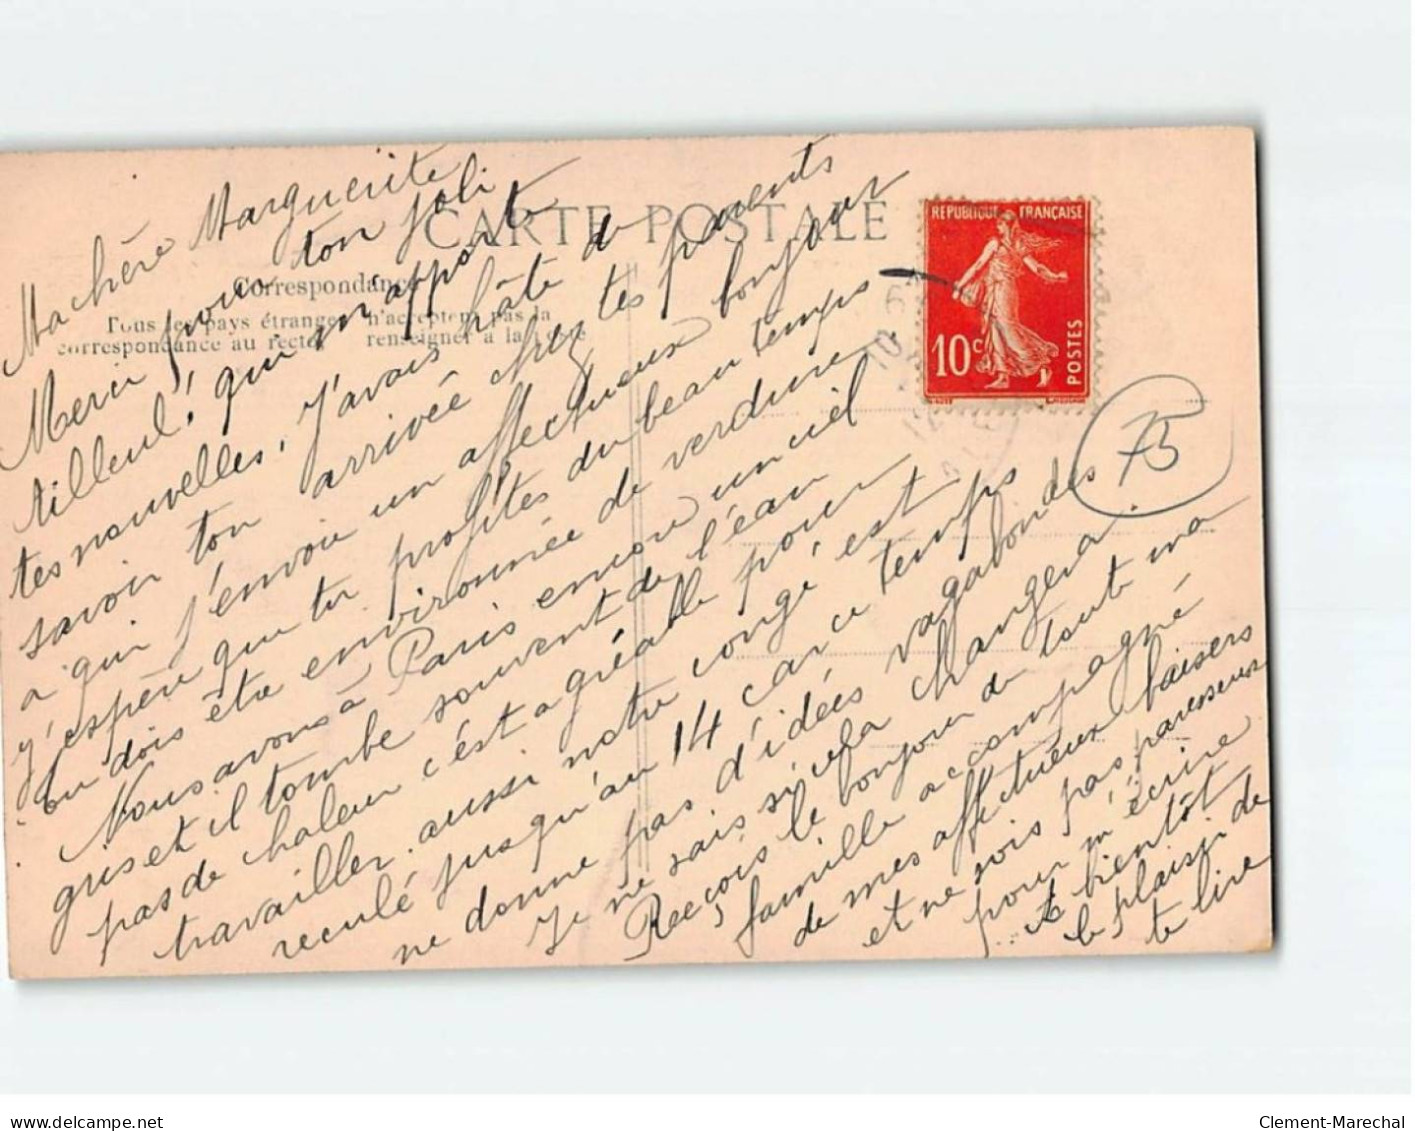 CARTE POSTALE
Correspondance
Tous les pays étrangers n'acceptent pas la
correspondance au recto, renseigner à la
RÉPUBLIQUE FRANÇAISE
10c
POSTES
75
Ma chère Marguerite
Merci pour ton joli
tilleul, qui m'apporte
tes nouvelles, j'avais hâte de
savoir ton arrivée chez tes parents
a qui j'envoie un affectueux bonjour
j'espère que tu profites du beau temps
tu dois être environnée de verdure
Nous avons à Paris encore un ciel
gris et il tombe souvent de l'eau
pas de chaleur c'est agréable pour
travailler. aussi notre congé est
reculé jusqu'au 14 car ce temps
ne donne pas d'idées vagabondes
Je ne sais si cela changera.
Reçois le bonjour de toute ma
famille accompagné
de mes affectueux baisers
et ne sois pas paresseuse
pour m'écrire
à bientôt
le plaisir de
te lire
Clement-Marechal
delcampe.net